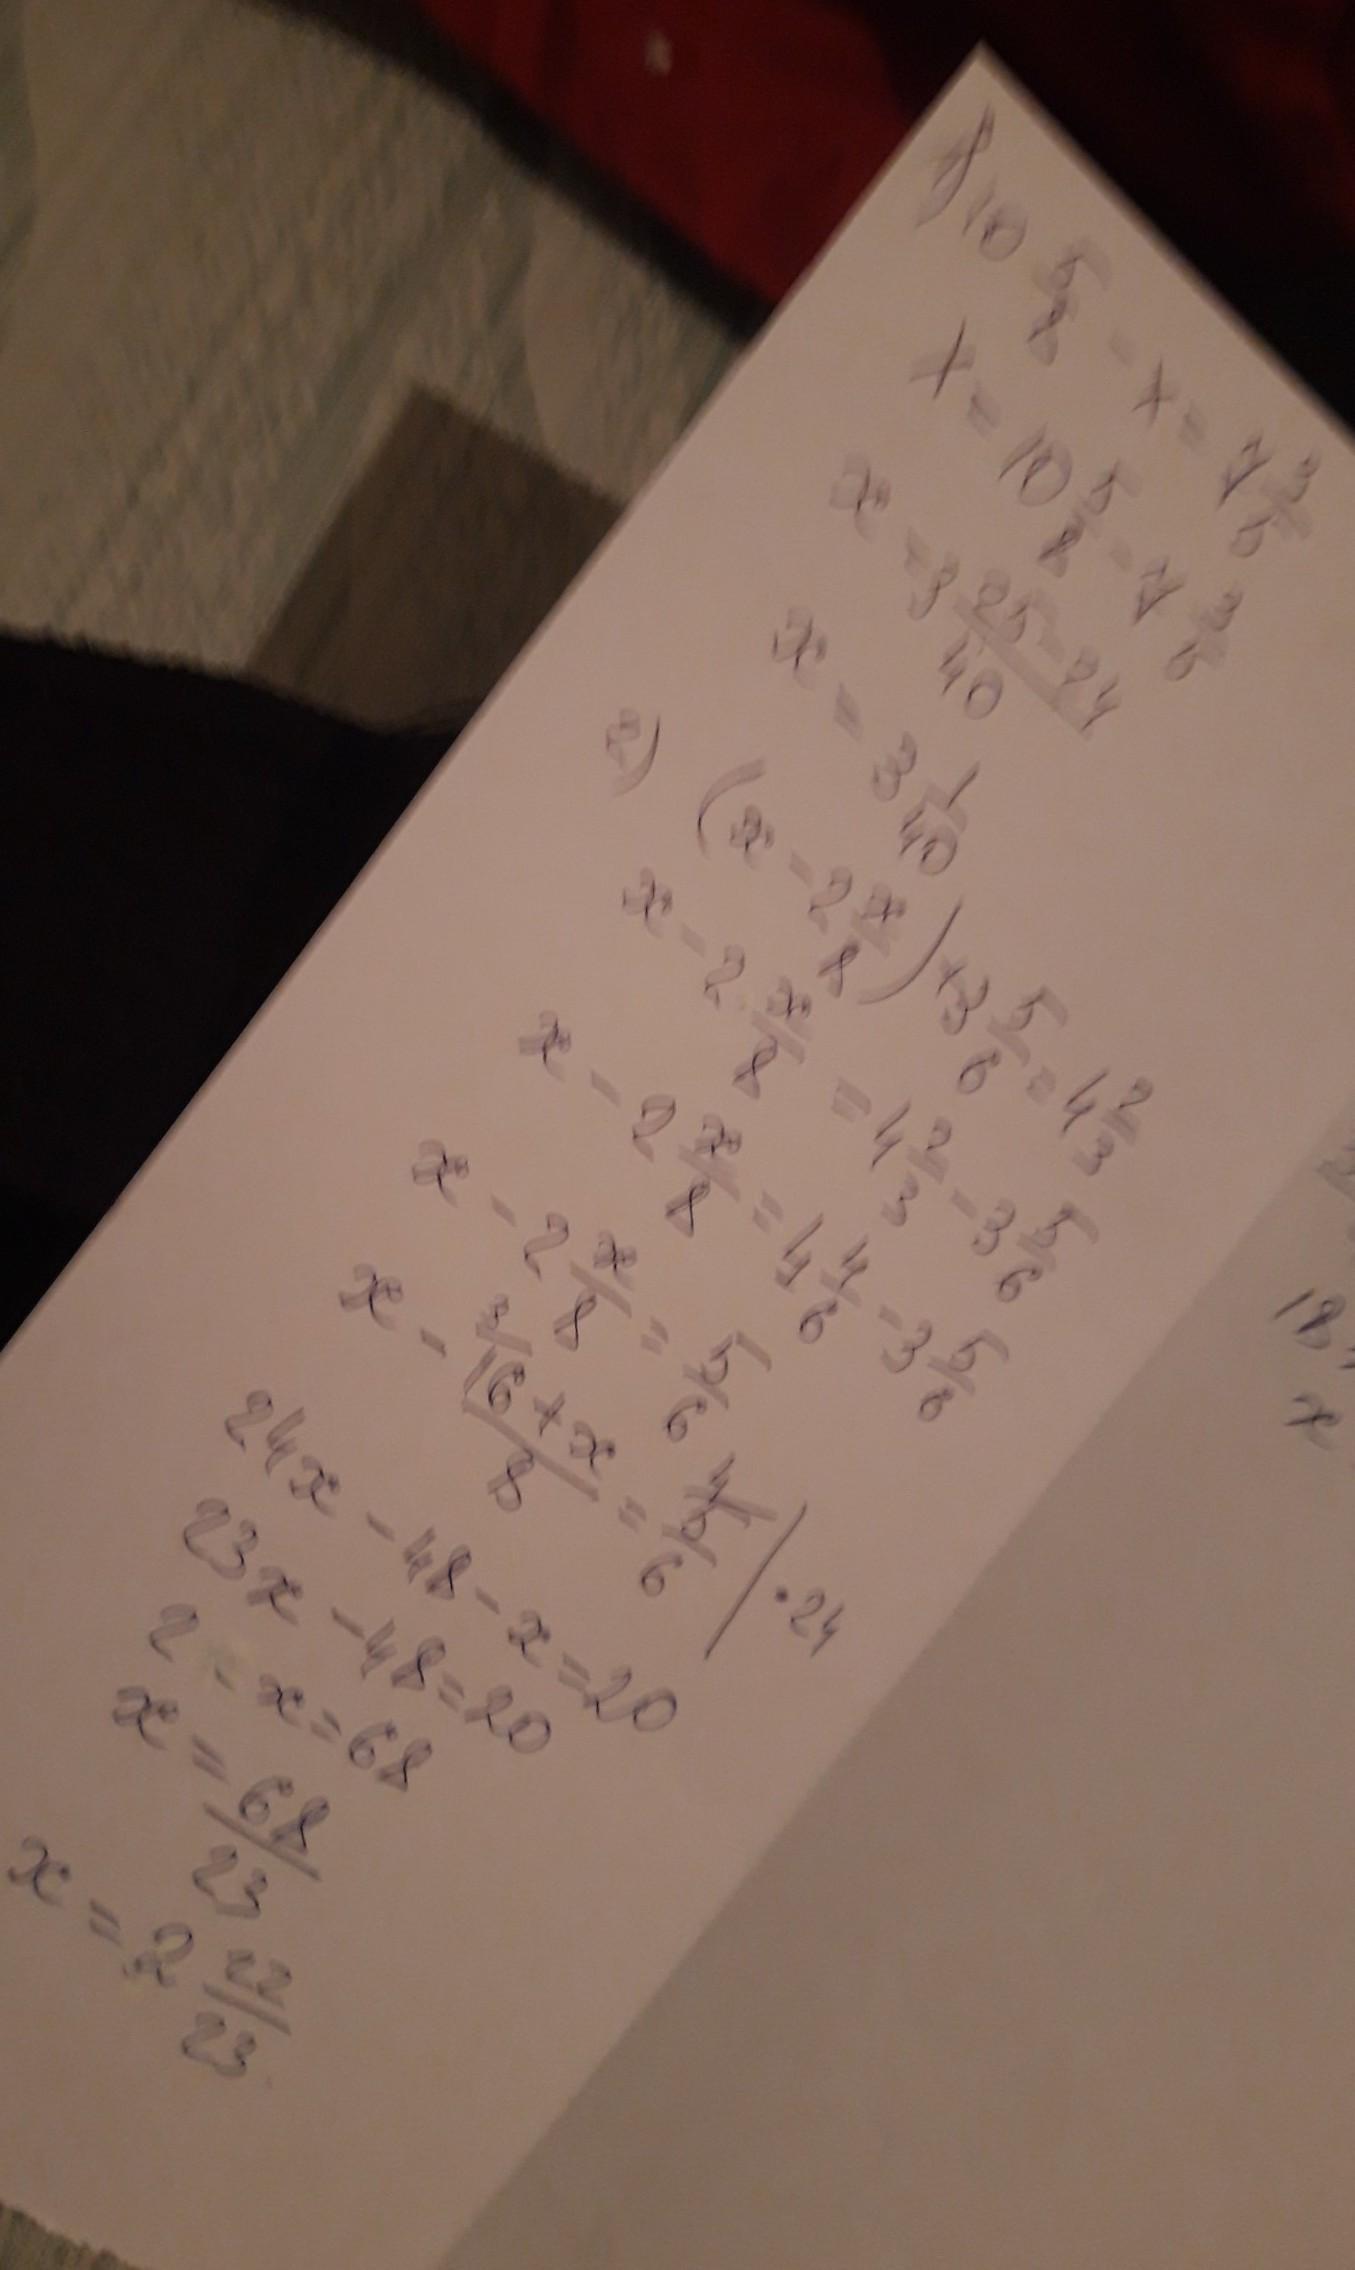 в) 10 5/8 - x = 7 3/5
x = 10 5/8 - 7 3/5
x = 3 (25-24)/40
x = 3 1/40
г) (x - 2 x/8) + 3 5/6 = 4 2/3
x - 2 x/8 = 4 2/3 - 3 5/6
x - 2 x/8 = 4 4/6 - 3 5/6
x - 2 x/8 = 5/6
x - (16+x)/8 = 5/6 | · 24
24x - 48 - x = 20
23x - 48 = 20
x = 68
x = 68/23
x = 2 22/23
18
x